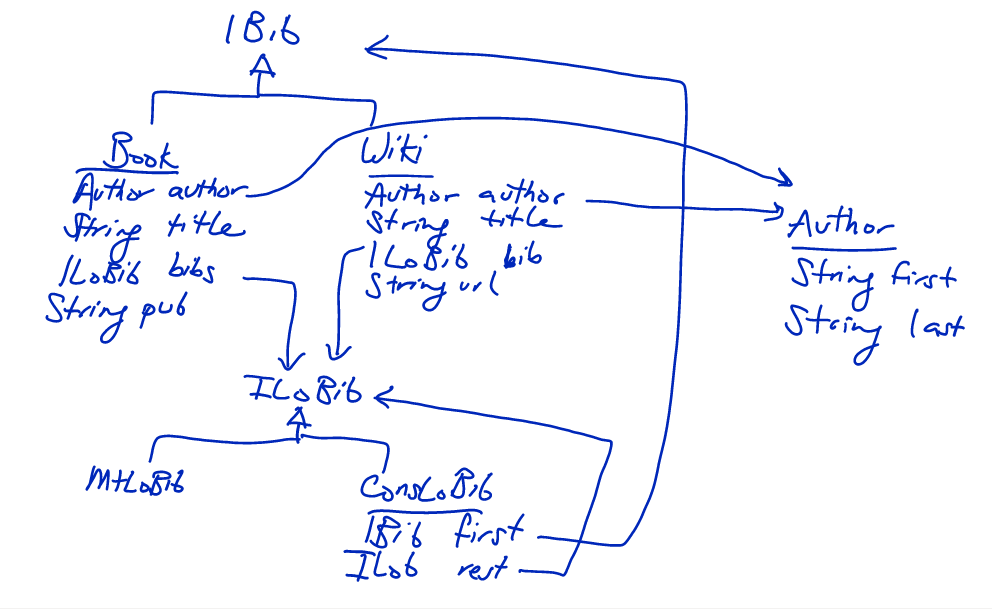 IBib
Book
Author author
String title
ILoBib bibs
String pub
Wiki
Author author
String title
ILoBib bib
String url
Author
String first
String last
ILoBib
MtLoBib
ConsLoBib
IBib first
ILob rest